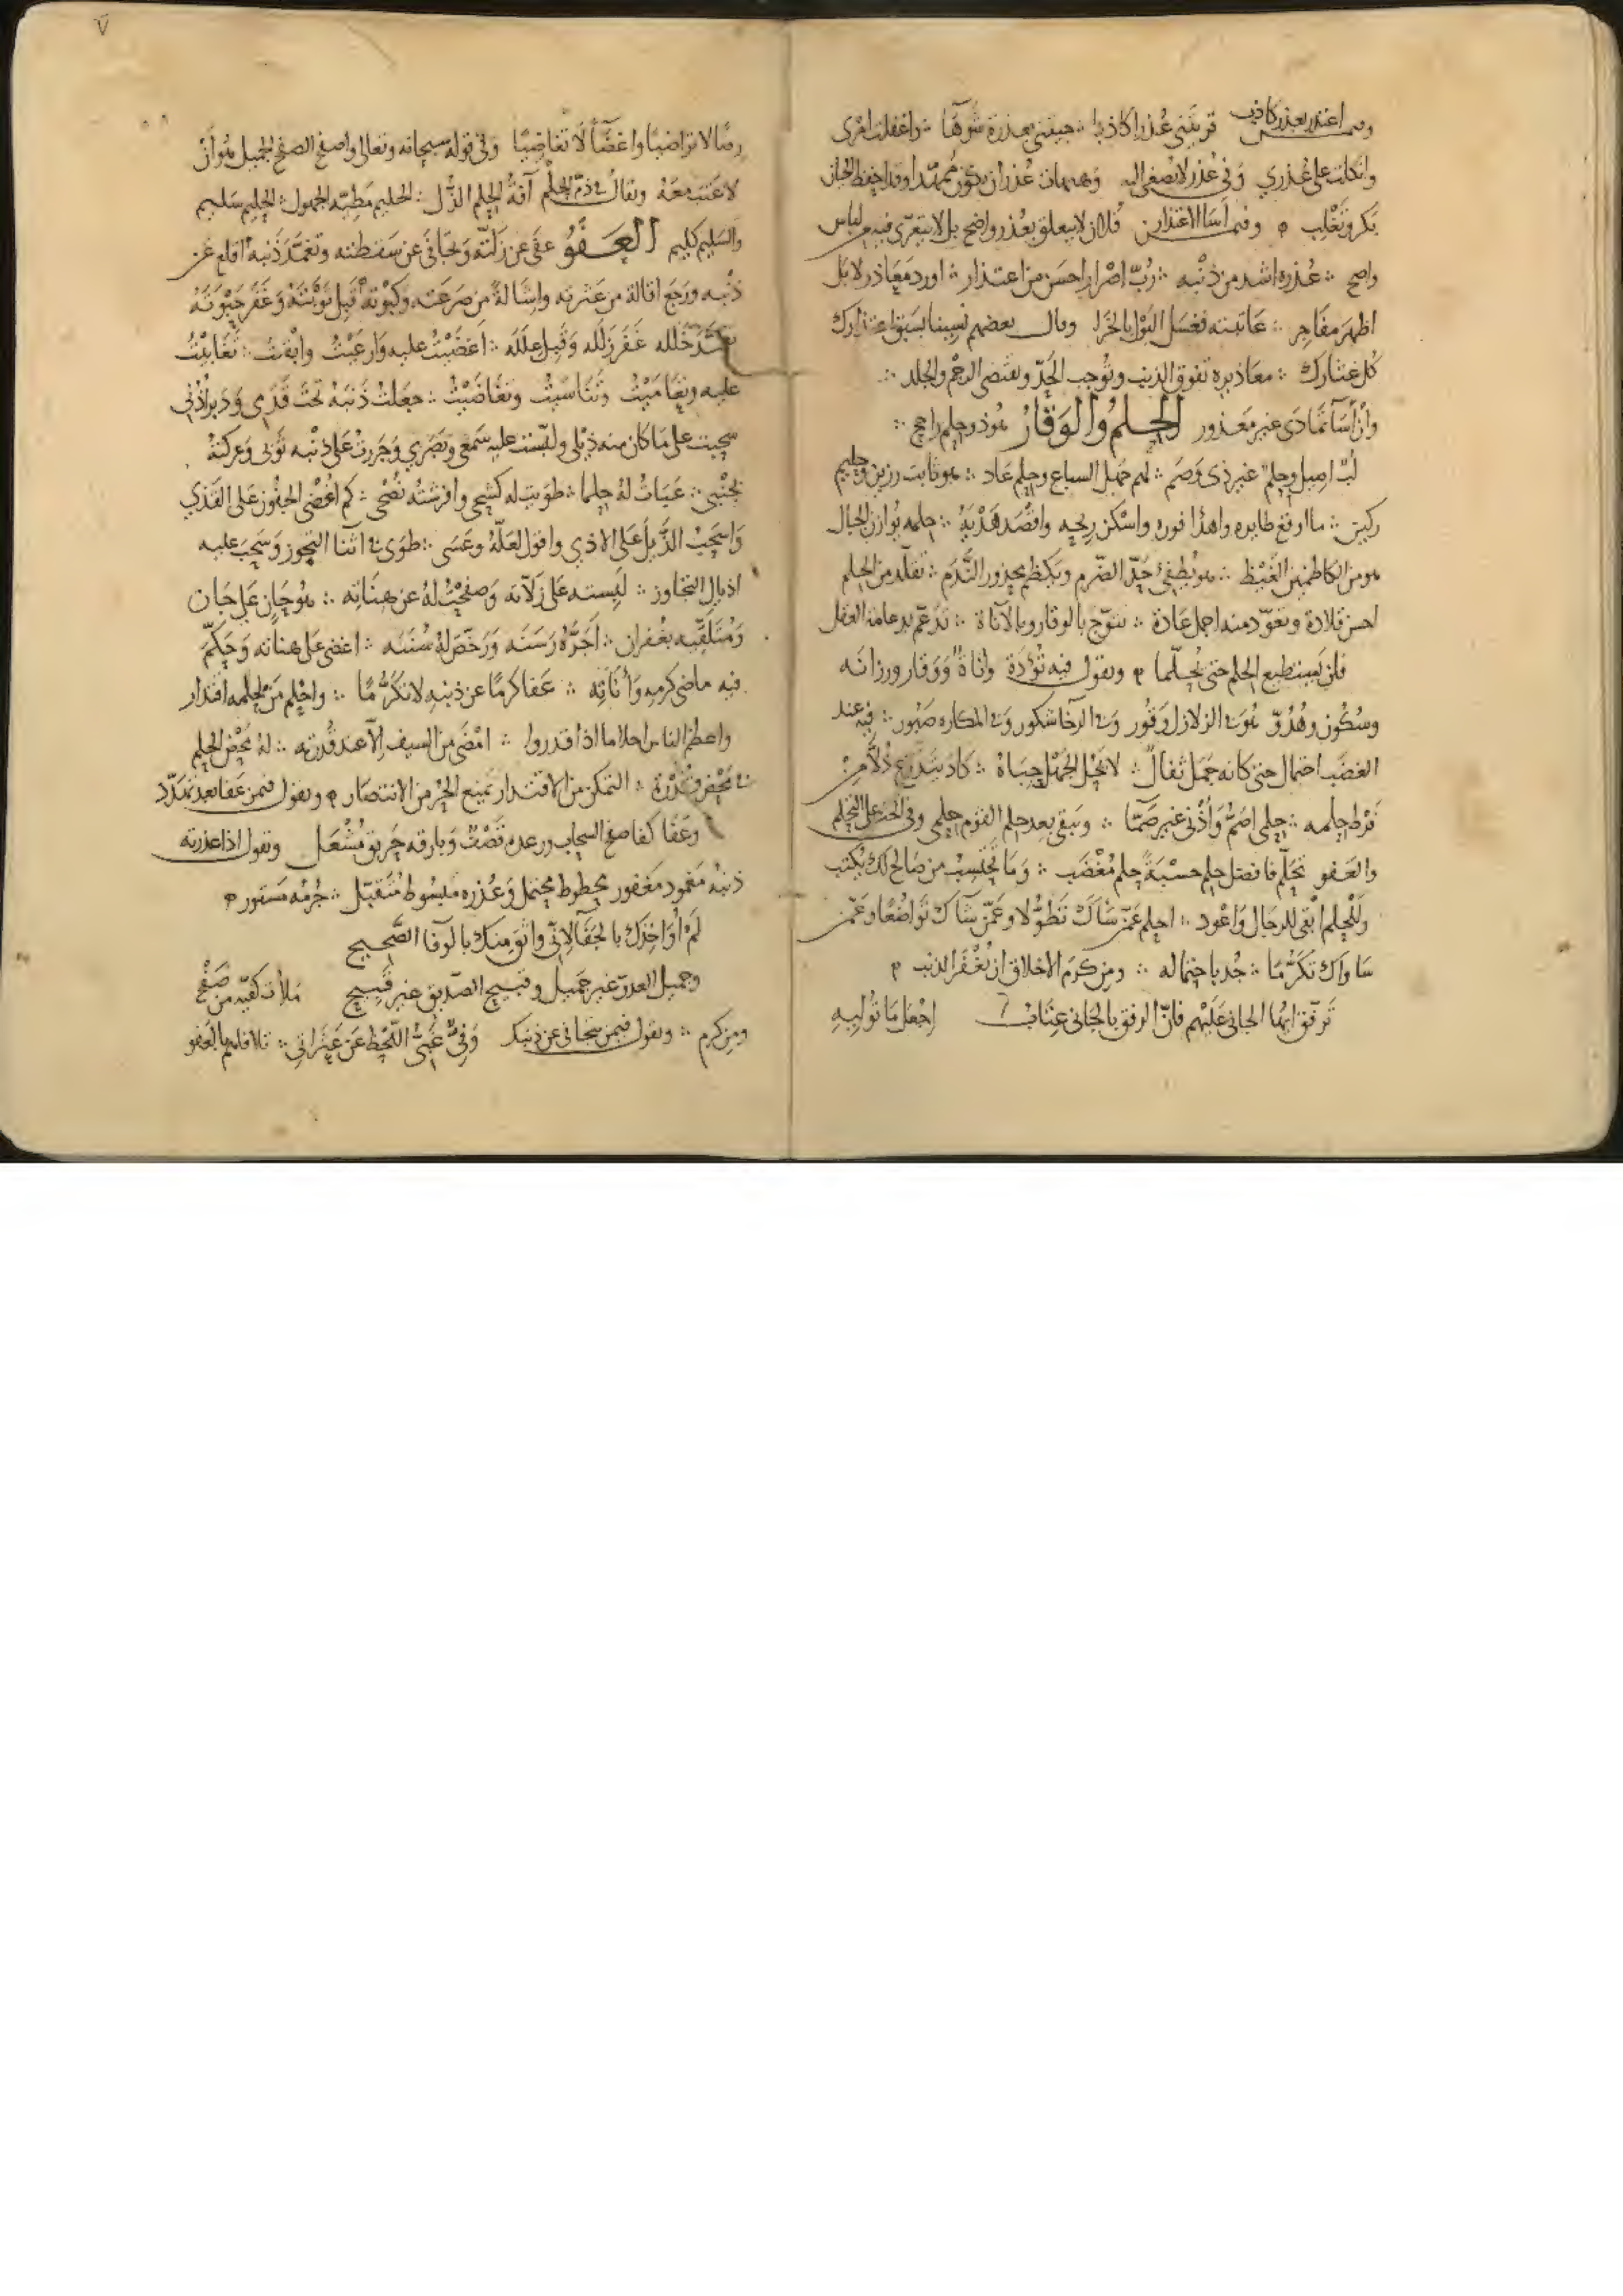 وممن اعتذر بعذر كاذب قربتني عذرا كاذبا ∴ جيئتني بعذرة شوها ∴ واغفلت امرى
واتكلت على عذري وفي عذر لا يصغى اليه وهيهات عذر ان يكون ممهدا وقد احفظ الحيان
بكر وتغلب ۞ وفيمن أسا الاعتذار فلان لا يتعلق بعذر واضح بل لا يتعرى فيه من لباس
واضح ∴ عذره اشد من ذنبه ∴ رب اصرار احسن من اعتذار ∴ اورد معاذر لا بل
اظهر مفاجر ∴ عاتبته فغسل البول بالخرا وقال بعضهم نسينا بسبق اعتذارك
كل عثارك ∴ معاذيره تفوق الذنب وتوجب الحد وتقتضي الرجم والجلد ∴
وان أسا تمادى غير معذور الحلم والوقار هو ذو حلم راجح ∴
لب اصيل وحلم غير ذي وصم ∴ لهم جهل السباع وحلم عاد ∴ هو ثابت رزين وحليم
ركين ∴ ما اوقع طايره واهدا فوره واسكن ريحه واقصد هديه ∴ حلمه يوازن الجبال
هو من الكاظمين الغيظ ∴ هو يطفئ حد الضرم ويكظم محذور الندم ∴ تقلد من الحلم
احسن قلادة وتعود منه اجمل عادة ∴ تتوج بالوقار وبالاناة ∴ تدعم بدعامة العقل
فلن يستطيع الحلم حتى تحلما ۞ وتقول فيه تؤدة واناة ووقار ورزانه
وسكون وهدو هو في الزلازل وقور وفي الرخا شكور وفي المكاره صبور ∴ فيه عند
الغضب احتمال حتى كانه جمل ثفال ∴ لا تحل الجهل حباه ∴ كاد يتدرع ذلا من
فرط حلمه ∴ حلمي اصم واذني غير صما ∴ ويبقى بعد حلم القوم حلمي وفي الحث على التحلم
والعفو تحلم فما فضل حلم حسبته حلم مغضب ∴ وما تحتسب من صالح لك يكتب
وللحلم ابقى للرجال واعود ∴ احلم عمن شاك تطولا وعمن شاك تواضعا وعمن
ساواك تكرما ∴ جد باحتماله ∴ ومن كرم الاخلاق ان تغفر الذنب ۞
ترفق ايها الجاني عليهم فان الرفق بالجاني عتاب اجعل ما توليه
رضا لا تراضيا واغضاً لا تغاضيا وفي قوله سبحانه وتعالى واصفح الصفح الجميل هو ان
لا عتب معه ويقال في ذم الحلم آفة الحلم الذل ∴ الحليم مطية الجهول ∴ الحليم سليم
والسليم كليم العفو عفى عن زلته وتجافى عن سقطته وتغمد ذنبه اقلع عن
ذنبه ورجع اقالة من عثرته واشالة من صرعته وكبوته قبل توبته وغفر حوبته
خلله غفر زلله وقبل علله ∴ اغضيت عليه وارعيت وابقيت ∴ تغابيت
عليه وتعاميت وتناسيت وتغاضيت ∴ جعلت ذنبه تحت قدمي ودبر أذني
سحبت على ما كان منه ذيلي ولبست عليه سمعي وبصري وجررت على ذنبه ثوبي وعركته
بجنبي ∴ عبات له حلما ∴ طويت له كشحي وافرشته نصحي ∴ كم اغضي الجفون على القذي
واسحب الذيل على الاذى واقول لعله وعسى ∴ طوى في اثنا التجوز وسحب عليه
اذيال التجاوز ∴ لبسته على زلاته وصفحت له عن هناته ∴ هو جان على جان
ومتلقيه بغفران ∴ اجره رسنه ورخص له سننه ∴ اغضى على هناته وحكم
فيه ماضي كرمه وأناته ∴ عفا كرما عن ذنبه لا تكرما ∴ واحلم من حلمه اقتدار
واعظم الناس احلاما اذا قدروا ∴ امضى من السيف الا عند قدرته ∴ له محض الحلم
في محض قدرة ∴ التمكن من الاقتدار يمنع الحر من الانتصار ۞ وتقول فيمن عفا بعد تهدد
وعفا كفا صفح السحاب ورعده قصف وبارقه حريق مشعل وتقول اذا عذرته
ذنبه مغمود مغفور محطوط محتمل وعذره مبسوط متقبل ∴ جرمه مستور ۞
لم اواخذك بالجفا لاني واثق منك بالوفا الصحيح
وجميل العدو غير جميل وقبيح الصديق غير قبيح ملأت كفيه من صفح
ومن كرم ∴ وتقول فيمن تتجافى عن ذنبك وفي غبي اللحظ عن عثراتي ∴ تلافاهم بالعفو